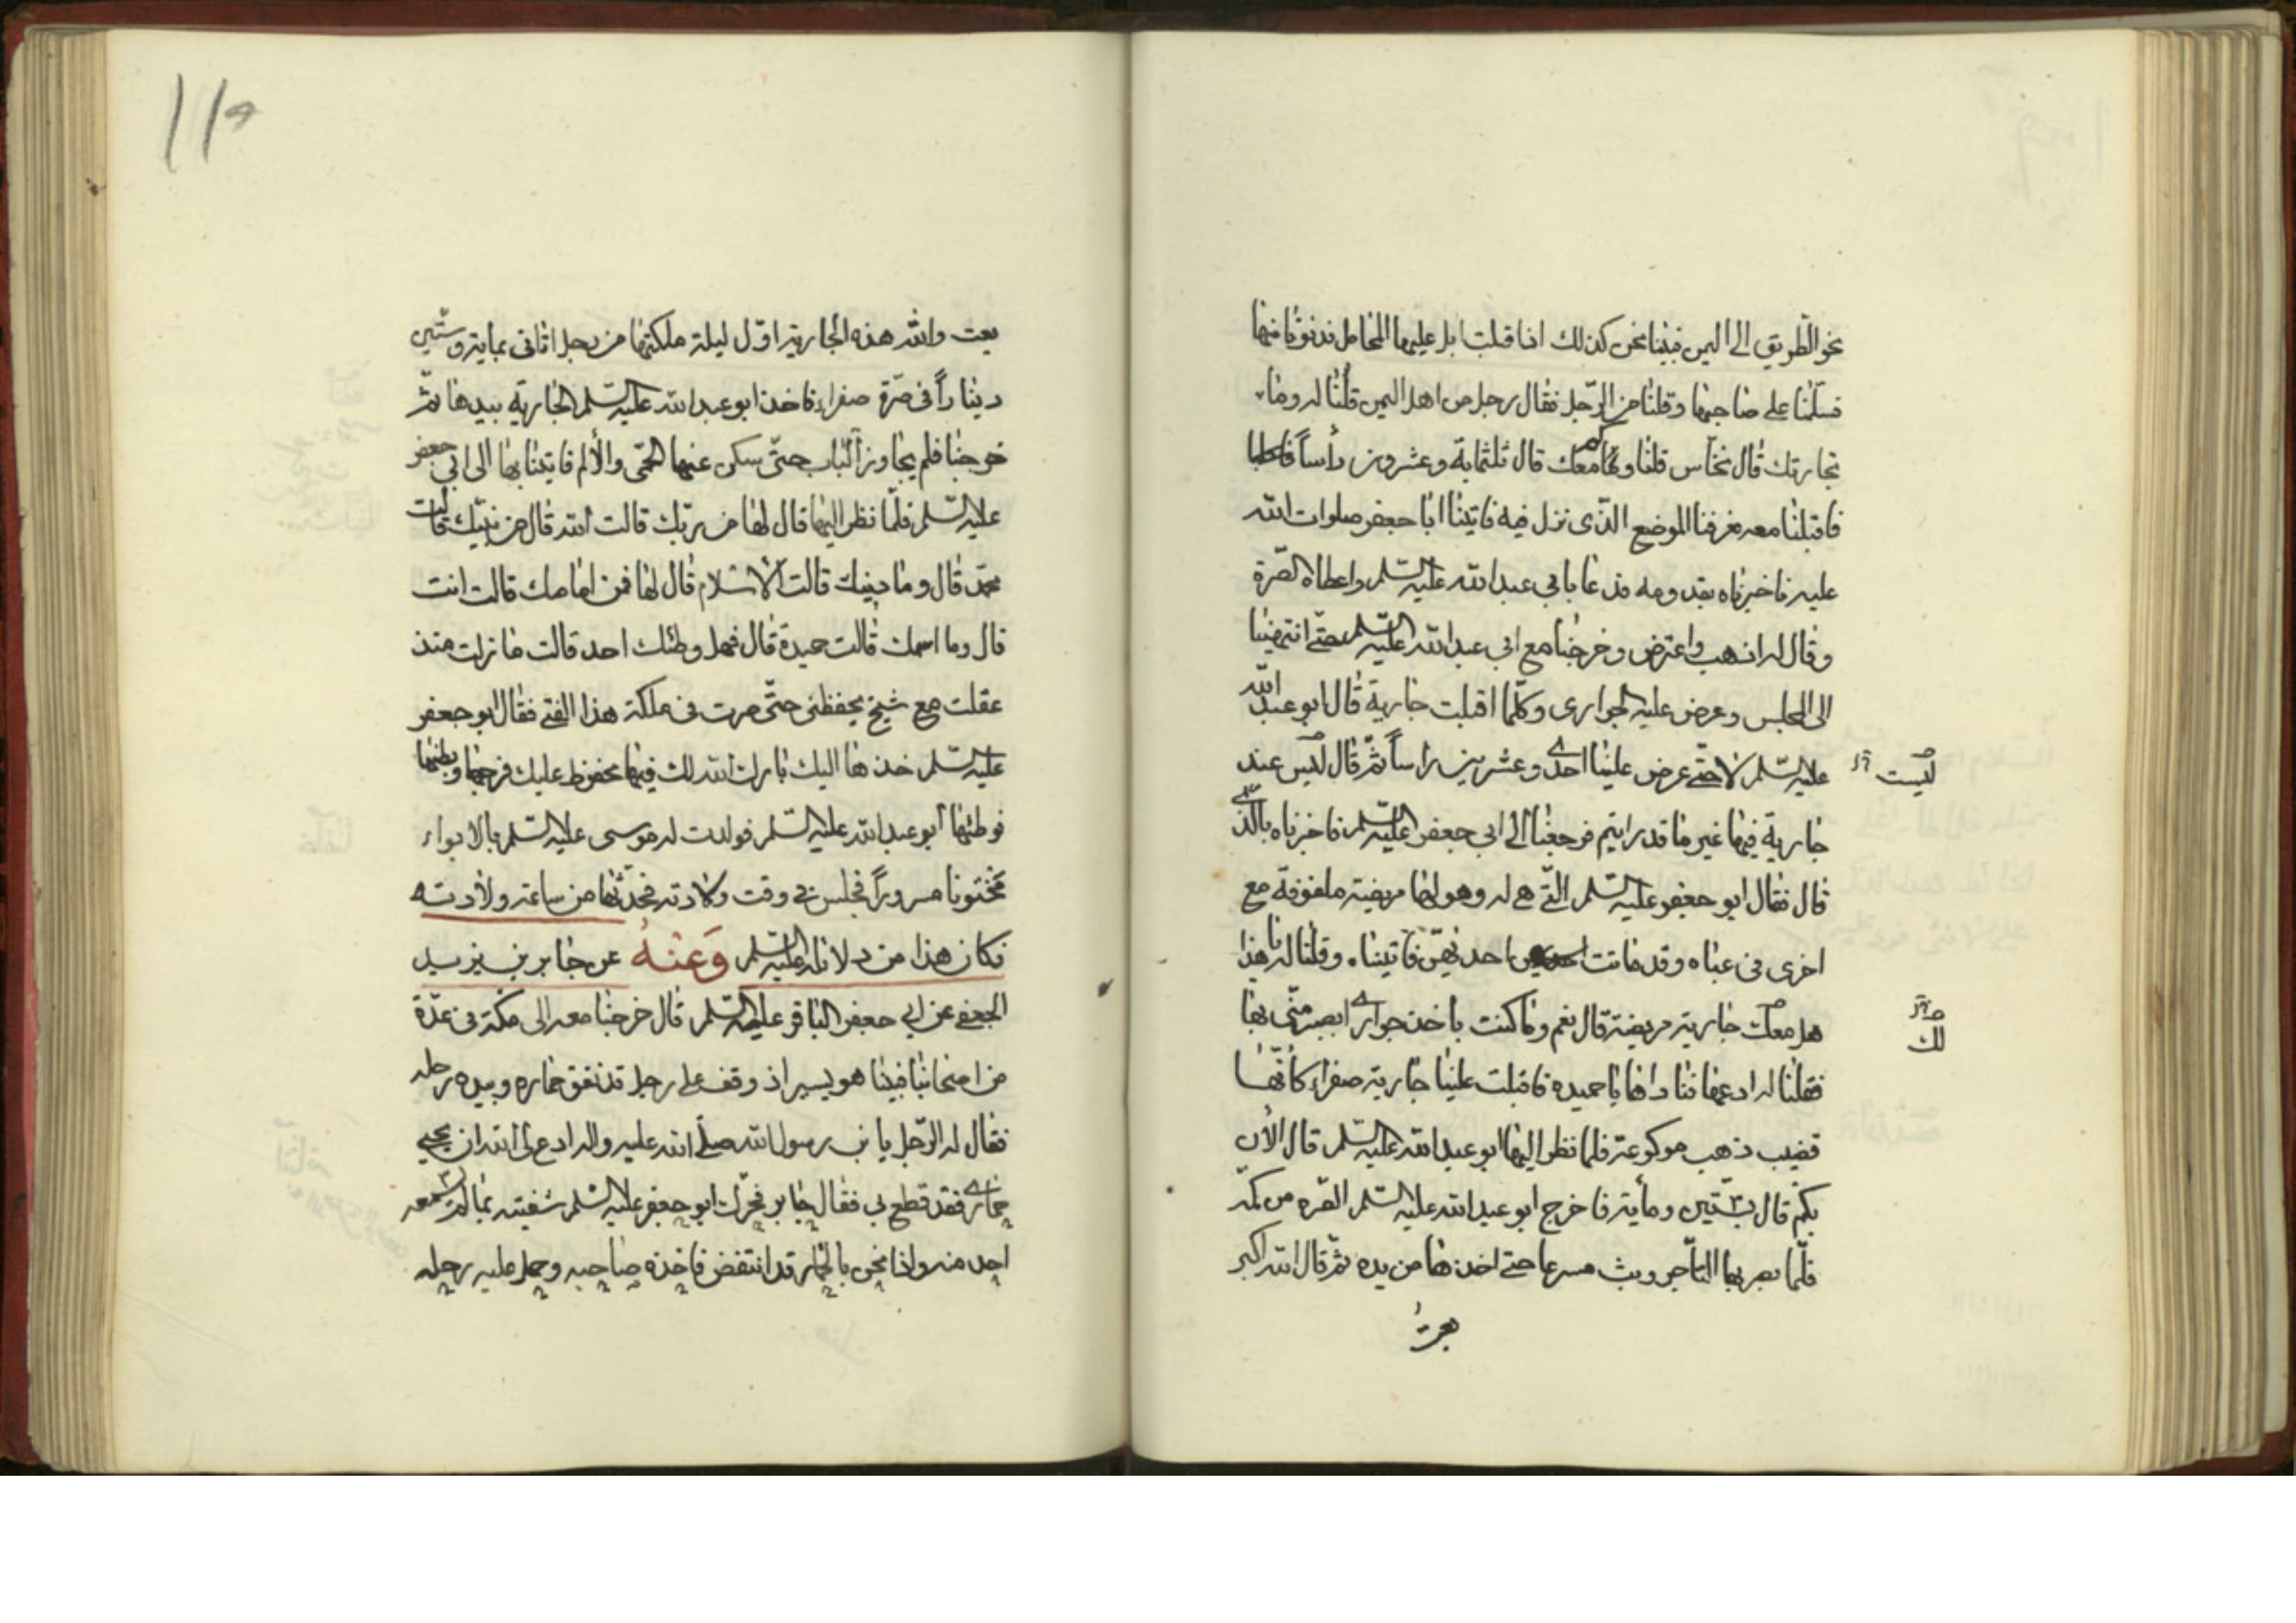 نحو الطريق الى اليمن فبينا نحن كذلك اذا اقبلت ابل عليها المحامل فدنونا منها
فسلمنا على صاحبها وقلنا من الرجل فقال رجل من اهل اليمن قلنا له وما
تجارتك قال نخاس قلنا وكم معك قال ثلثماية وعشرون رأساً
فاقبلنا معه فعرفنا الموضع الذى نزل فيه فاتينا ابا جعفر صلوات الله
عليه فاخبرناه بقدومه فدعا بابي عبد الله عليه السلم واعطاه الصرة
وقال له اذهب واعترض وخرجنا مع ابي عبد الله عليه السلم حتى انتهينا
الى المجلس وعرض عليه الجوارى وكلما اقبلت جارية قال ابو عبد الله
عليه السلم لا حتى عرض علينا احدى وعشرين راساً ثم قال ليس عندى
ليست
جارية فيها غير ما قد رايتم فرجعنا الى ابي جعفر عليه السلم فاخبرناه بالذى
قال فقال ابو جعفر عليه السلم التى هى له وهو لها مريضة ملفوفة مع
اخرى فى عباه وقد ماتت احديهن فاتيناه وقلنا له يا هذا
هل معك جارية مريضة قال نعم وما كنت ياخذ جوارى ابصر منى بها
لك
فقلنا له ادعها فناداها يا حميده فاقبلت علينا جارية صفراء كانها
قضيب ذهب موكوعة فلما نظر اليها ابو عبد الله عليه السلم قال الأن
بكم قال بستين ومأية فاخرج ابو عبد الله عليه السلم الصره من كمه
فلما بصر بها التاجر وثب مسرعا حتى اخذها من يده ثم قال الله اكبر
بعت
١١٥
بعت والله هذه الجارية اول ليلة ملكتها من رجل اتانى بماية وستين
ديناراً فى صرة صفراء فاخذ ابو عبد الله عليه السلم الجارية بيدها ثم
خرجنا فلم يجاوز الباب حتى سكن عنها الحمى والألم فاتينا بها الى ابي جعفر
عليه السلم فلما نظر اليها قال لها من ربك قالت الله قال من نبيك قالت
محمد قال وما دينك قالت الاسلام قال لها فمن امامك قالت انت
قال وما اسمك قالت حميدة قال فهل وطئك احد قالت ما زلت منذ
عقلت مع شيخ يحفظنى حتى صرت فى ملكة هذا الفتى فقال ابو جعفر
عليه السلم خذها اليك بارك الله لك فيها محفوظ عليك فرجها وبطنها
فوطئها ابو عبد الله عليه السلم فولدت له موسى عليه السلم بالابواء
مختونا مسروراً فجلس فى وقت ولادته فحدثها من ساعة ولادته
فكان هذا من دلائله عليه السلم وَعَنْهُ عن جابر بن يزيد
الجعفى عن ابى جعفر الباقر عليه السلم قال خرجنا معه الى مكة فى عدة
من اصحابنا فبينا هو يسير اذ وقف على رجل قد نفق حماره وبيده رحله
فقال له الرجل يا بن رسول الله صلى الله عليه واله ادع لى الله ان يحيى
حمارى فقد قطع بى فقال جابر فحرك ابو جعفر عليه السلم شفتيه بما لم يسمعه
احد منه واذا نحن بالحمار قد انتفض فاخذه صاحبه وحمل عليه رحله